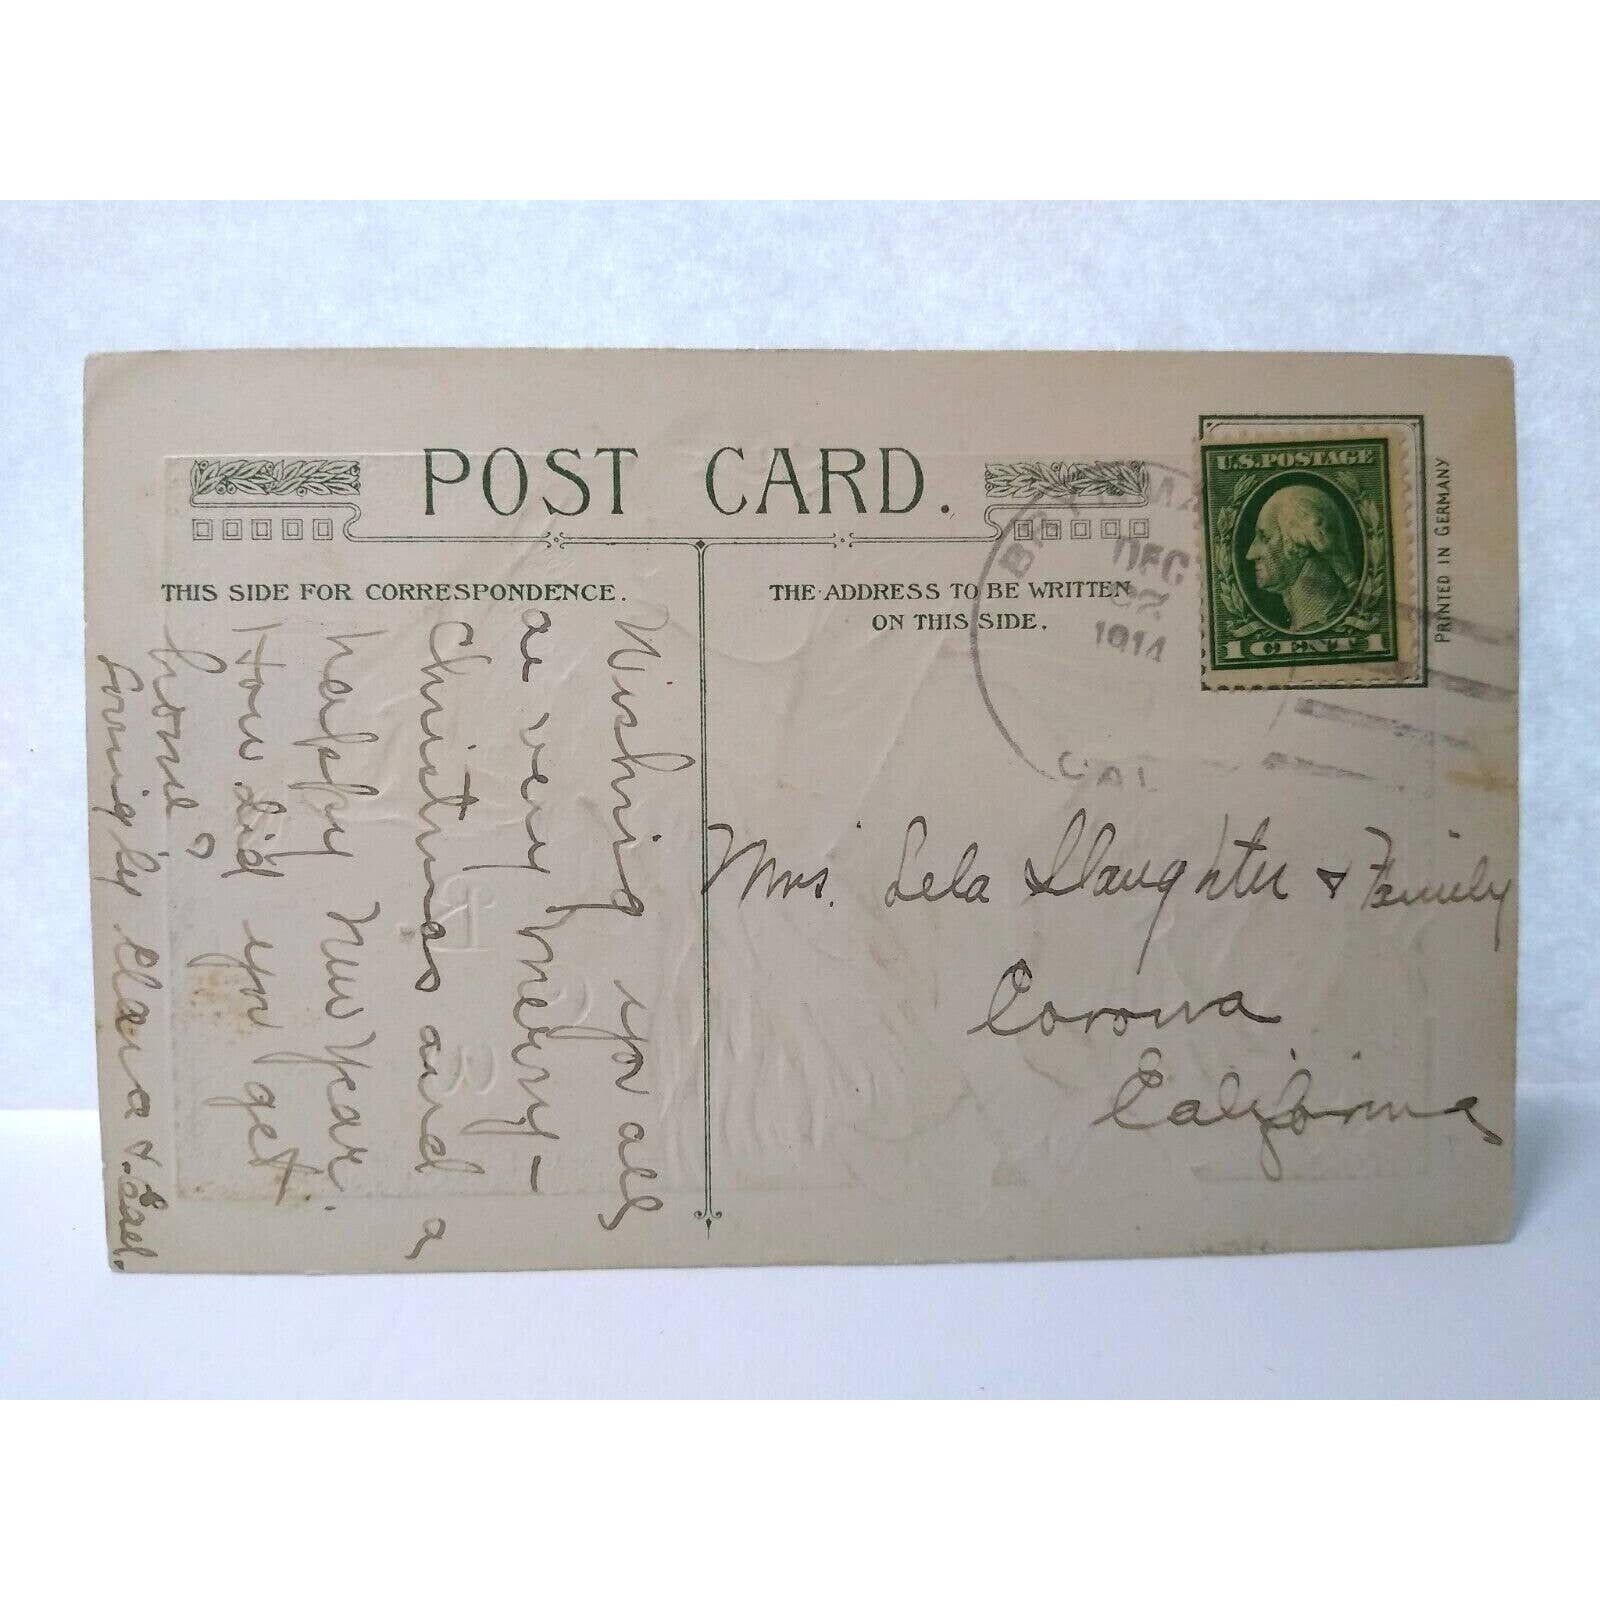 POST CARD.
THIS SIDE FOR CORRESPONDENCE.
THE ADDRESS TO BE WRITTEN
ON THIS SIDE.
Wishing you all
a very Merry –
Christmas and a
happy New Year.
How did you get
home?
Lovingly Clara & Earl.
DEC
22
1914
CAL
U.S. POSTAGE
1 CENT 1
PRINTED IN GERMANY
Mrs. Lela Slaughter & Family
Corona
California